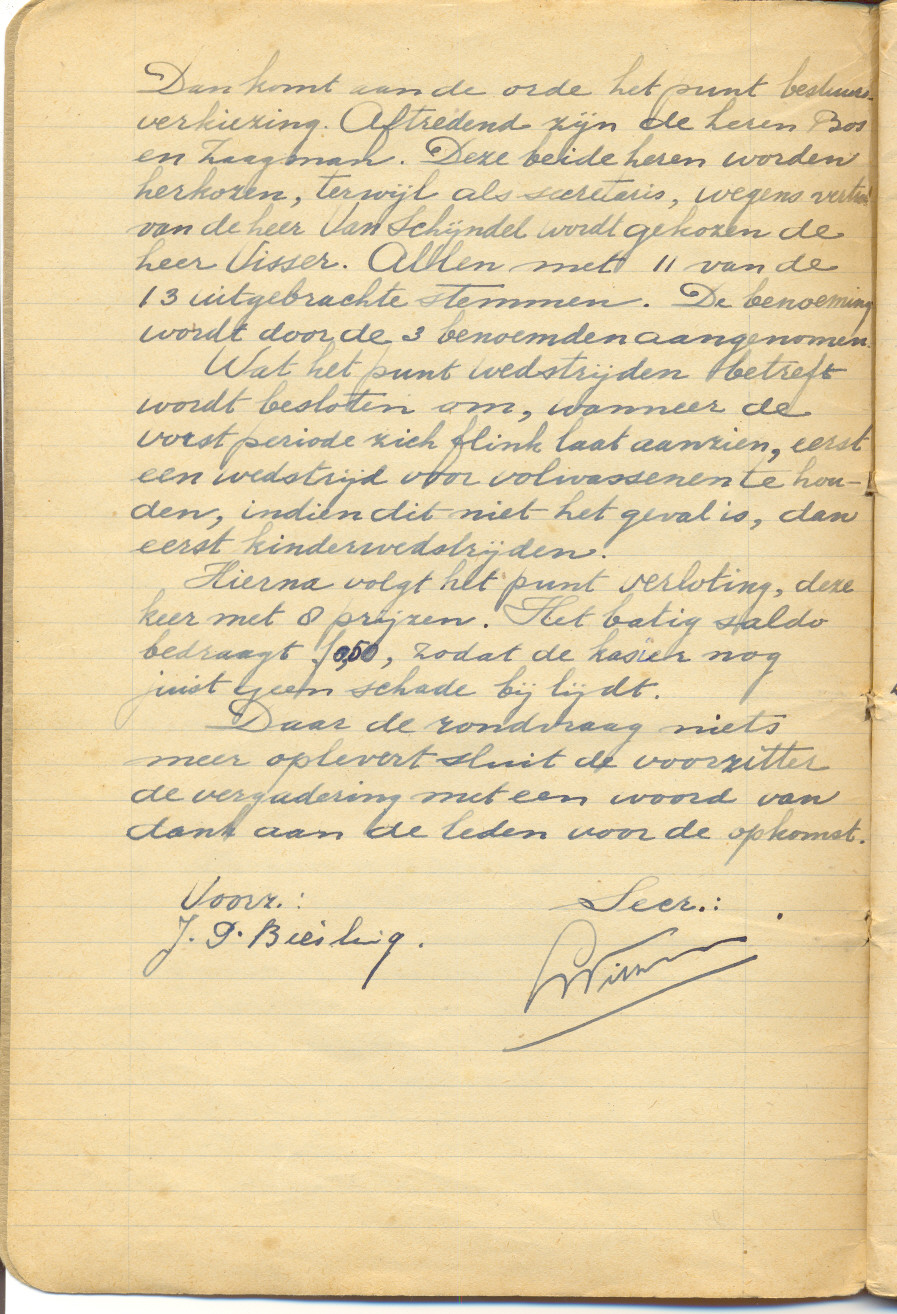 Dan komt aan de orde het punt bestuurs-
verkiezing. Aftredend zijn de heren Bos
en Zaagman. Deze beide heren worden
herkozen, terwijl als secretaris, wegens vertrek
van de heer Van Schijndel wordt gekozen de
heer Visser. Allen met 11 van de
13 uitgebrachte stemmen. De benoeming
wordt door de 3 benoemden aangenomen.
Wat het punt wedstrijden betreft
wordt besloten om, wanneer de
vorst periode zich flink laat aanzien, eerst
een wedstrijd voor volwassenen te hou-
den, indien dit niet het geval is, dan
eerst kinderwedstrijden.
Hierna volgt het punt verloting, deze
keer met 8 prijzen. Het batig saldo
bedraagt f 0,50, zodat de kasier nog
juist geen schade bij lijdt.
Daar de rondvraag niets
meer oplevert sluit de voorzitter
de vergadering met een woord van
dank aan de leden voor de opkomst.
Voorz.: Secr.:
J. P.